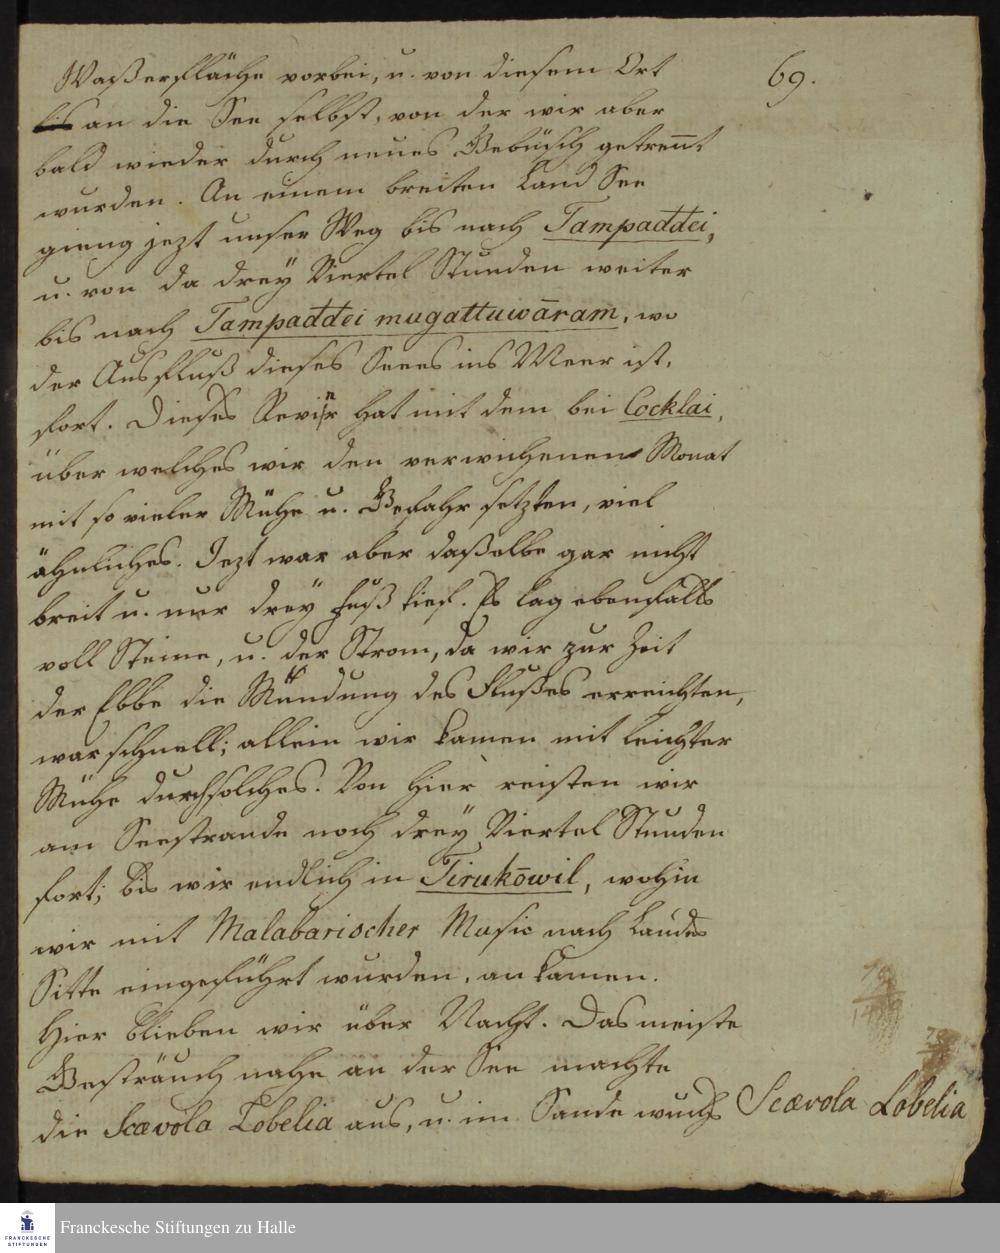 69.
Waßerfläche vorbei, u. von diesem Ort
bis an die See selbst, von der wir aber
bald wieder durch neues Gebüsch getrennt
wurden. An einem breiten Land See
gieng jezt unser Weg bis nach Tampaddei,
u. von da drey Viertel Stunden weiter
bis nach Tampaddei mugattuwāram, wo
der Ausfluß dieses Sees ins Meer ist,
fort. Dieses Revier hat mit dem bei Cocklai,
über welches wir den verwichenen Monat
mit so vieler Mühe u. Gefahr setzten, viel
ähnliches. Jezt war aber daßelbe gar nicht
breit u. nur drey Fuß tief. Es lag ebenfalls
voll Steine, u. der Strom, da wir zur Zeit
der Ebbe die Mündung des Flußes erreichten,
war schnell; allein wir kamen mit leichter
Mühe durch solches. Von hier reisten wir
am Seestrande noch drey Viertel Stunden
fort; bis wir endlich in Tirukōwil, wohin
wir mit Malabarischer Music nach Landes
Sitte eingeführt wurden, an kamen.
Hier blieben wir über Nacht. Das meiste
Gesträuch nahe an der See machte
die Scævola Lobelia aus, u. im Sande wuchs
Scævola Lobelia
Franckesche Stiftungen zu Halle
FRANCKESCHE
STIFTUNGEN